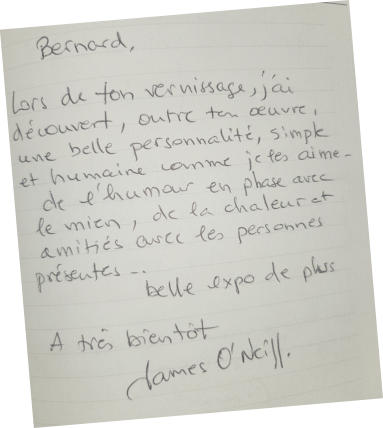 Bernard,
Lors de ton vernissage, j'ai
découvert, outre ton œuvre,
une belle personnalité, simple
et humaine comme je les aime -
de l'humour en phase avec
le mien, de la chaleur et
amitiés avec les personnes
présentes - ..
belle expo de plus
A très bientôt
James O'Neill.